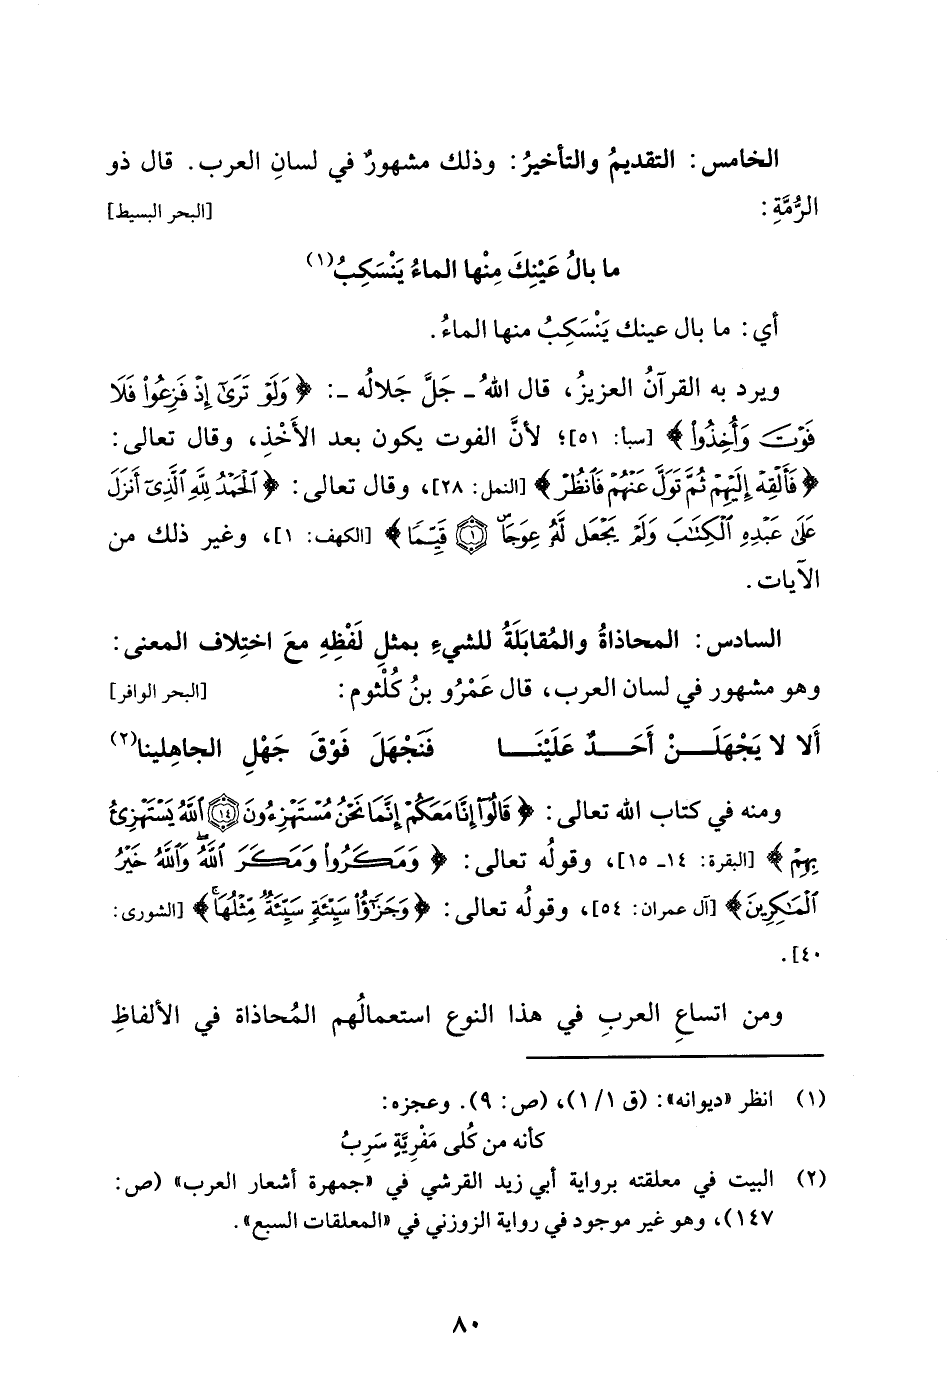 الخامس: التقديمُ والتأخيرُ: وذلك مشهورٌ في لسانِ العرب. قال ذو
الرُّمَّةِ: [البحر البسيط]
ما بالُ عَيْنِكَ مِنْها الماءُ يَنْسَكِبُ(١)
أي: ما بال عينك يَنْسَكِبُ منها الماءُ.
ويرد به القرآنُ العزيزُ، قال اللهُ ـ جَلَّ جَلالُه ـ: ﴿وَلَوْ تَرَىٰٓ إِذْ فَزِعُوا۟ فَلَا
فَوْتَ وَأُخِذُوا۟﴾ [سبأ: ٥١]؛ لأنَّ الفوت يكون بعد الأَخْذِ، وقال تعالى:
﴿فَأَلْقِهْ إِلَيْهِمْ ثُمَّ تَوَلَّ عَنْهُمْ فَٱنظُرْ﴾ [النمل: ٢٨]، وقال تعالى: ﴿ٱلْحَمْدُ لِلَّهِ ٱلَّذِىٓ أَنزَلَ
عَلَىٰ عَبْدِهِ ٱلْكِتَٰبَ وَلَمْ يَجْعَل لَّهُۥ عِوَجَاۜ ۝١ قَيِّمًا﴾ [الكهف: ١]، وغير ذلك من
الآيات.
السادس: المحاذاةُ والمُقابَلَةُ للشيءِ بمثلِ لَفْظِهِ معَ اختِلاف المعنى:
وهو مشهور في لسان العرب، قال عَمْرُو بنُ كُلْثوم: [البحر الوافر]
أَلا لا يَجْهَلَـــنْ أَحَـــدٌ عَلَيْنَـــا فَنَجْهَلَ فَوْقَ جَهْلِ الجاهِلينا(٢)
ومنه في كتاب الله تعالى: ﴿قَالُوٓا۟ إِنَّا مَعَكُمْ إِنَّمَا نَحْنُ مُسْتَهْزِءُونَ ۝١٤ ٱللَّهُ يَسْتَهْزِئُ
بِهِمْ﴾ [البقرة: ١٤ـ ١٥]، وقولُه تعالى: ﴿وَمَكَرُوا۟ وَمَكَرَ ٱللَّهُ ۖ وَٱللَّهُ خَيْرُ
ٱلْمَٰكِرِينَ﴾ [آل عمران: ٥٤]، وقولُه تعالى: ﴿وَجَزَٰٓؤُا۟ سَيِّئَةٍ سَيِّئَةٌ مِّثْلُهَا ۖ﴾ [الشورى:
٤٠].
ومن اتساعِ العربِ في هذا النوع استعمالُهم المُحاذاة في الألفاظِ
(١) انظر «ديوانه»: (ق ١/ ١)، (ص: ٩). وعجزه:
كأنه من كُلى مَفْرِيَّةٍ سَرِبُ
(٢) البيت في معلقته برواية أبي زيد القرشي في «جمهرة أشعار العرب» (ص:
١٤٧)، وهو غير موجود في رواية الزوزني في «المعلقات السبع».
٨٠